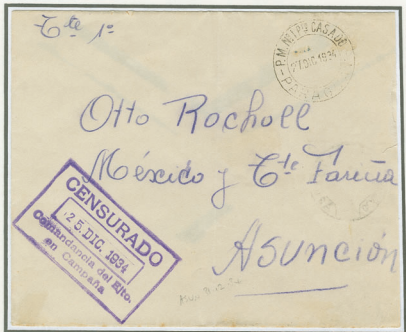 Tte 1º
P.M. Nº 1 Pto CASADO
27. DIC 1934
PARAGUAY
Otto Rocholl
México y Tte Fariña
Asunción
CENSURADO
25. DIC. 1934
Comandancia del Ejto.
en Campaña